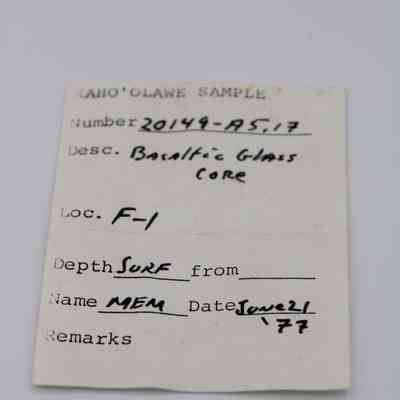 KAHO'OLAWE SAMPLE
Number 20149-A5.17
Desc. Basaltic Glass
Core
Loc. F-1
Depth SURF from
Name MEM Date June 21
'77
Remarks